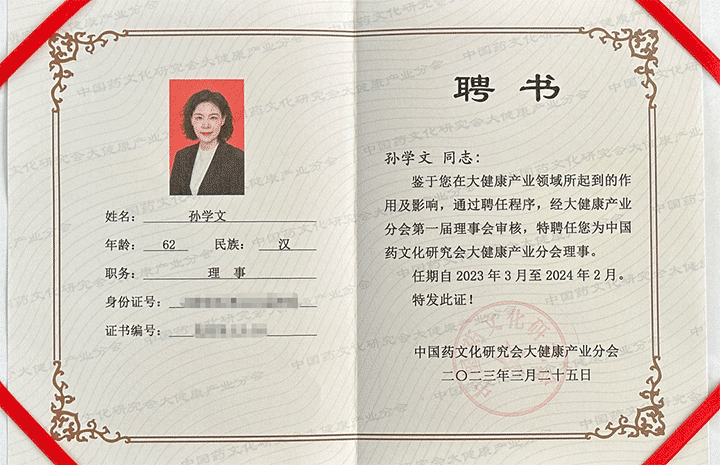 姓名：孙学文
年龄：62 民族：汉
职务：理 事
身份证号：
证书编号：
聘书
孙学文 同志：
鉴于您在大健康产业领域所起到的作
用及影响，通过聘任程序，经大健康产业
分会第一届理事会审核，特聘任您为中国
药文化研究会大健康产业分会理事。
任期自2023年3月至2024年2月。
特发此证！
中国药文化研究会大健康产业分会
二〇二三年三月二十五日
中国药文化研究会大健康产业分会